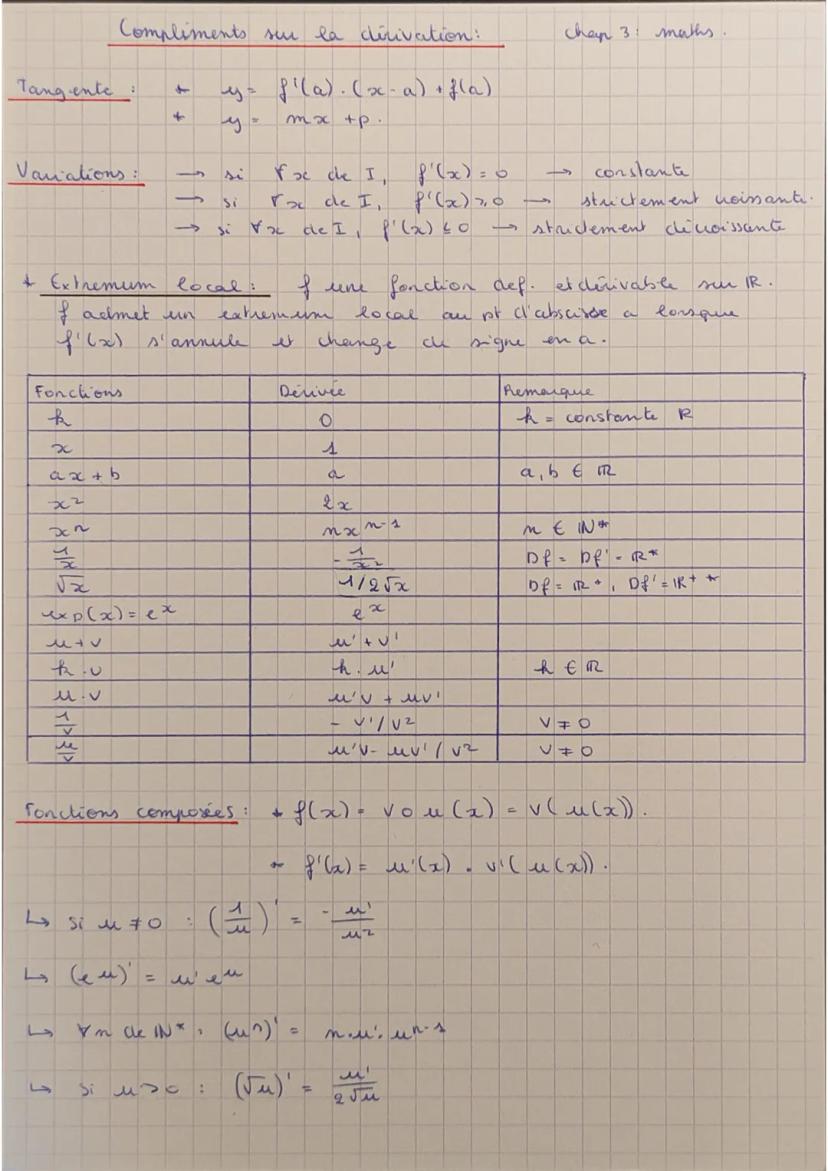 Compliments sur la dérivation: chap 3: maths.
Tangente: * y= f'(a).(x-a)+f(a)
* y= mx+p.
Variations: → si ∀x de I, f'(x)=0 → constante
→ si ∀x de I, f'(x)≥0 → strictement croissante.
→ si ∀x de I, f'(x)≤0 → strictement décroissante
* Extremum local: f une fonction def. et dérivable sur IR.
f admet un extremum local au pt d'abscisse a lorsque
f'(x) s'annule et change de signe en a.
Fonctions Dérivée Remarque
k 0 k = constante R
x 1
ax+b a a,b ∈ IR
x² 2x
xⁿ nxⁿ⁻¹ n ∈ IN*
1/x -1/x² Df = Df' = IR*
√x 1/2√x Df = IR+, Df' = IR+*
exp(x)=eˣ eˣ
u+v u'+v'
k.u k.u' k ∈ IR
u.v u'v + uv'
1/v - v'/v² v≠0
u/v u'v-uv'/v² v≠0
Fonctions composées: * f(x) = v o u(x) = v(u(x)).
* f'(x) = u'(x) . v'(u(x)).
↳ si u≠0 : (1/u)' = -u'/u²
↳ (eᵘ)' = u'eᵘ
↳ ∀n de IN*, (uⁿ)' = n.u'.uⁿ⁻¹
↳ si u>0 : (√u)' = u'/2√u